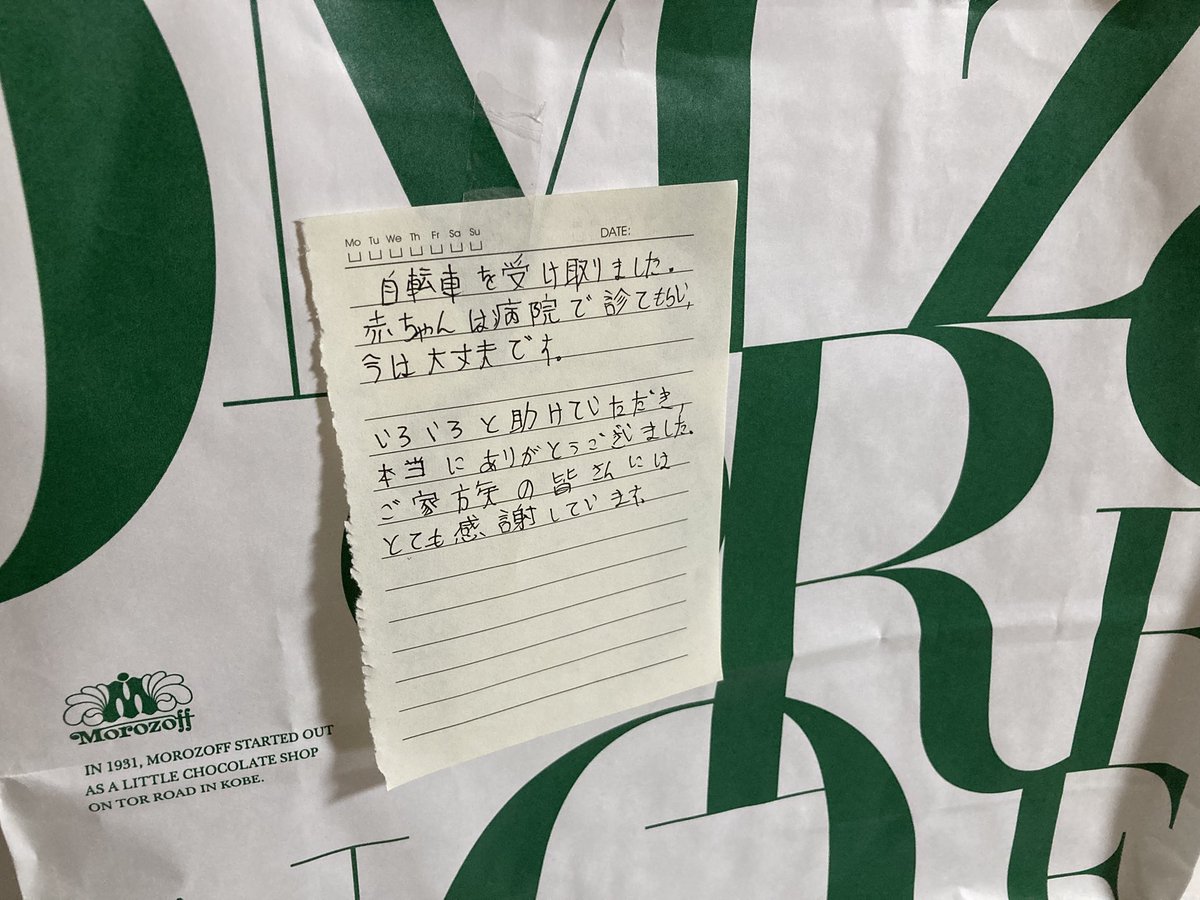 Mo Tu We Th Fr Sa Su DATE:
自転車を受け取りました。
赤ちゃんは病院で診てもらい,
今は大丈夫です。
いろいろと助けていただき,
本当にありがとうございました。
ご家族の皆さんには
とても感謝しています。
Morozoff
IN 1931, MOROZOFF STARTED OUT
AS A LITTLE CHOCOLATE SHOP
ON TOR ROAD IN KOBE.